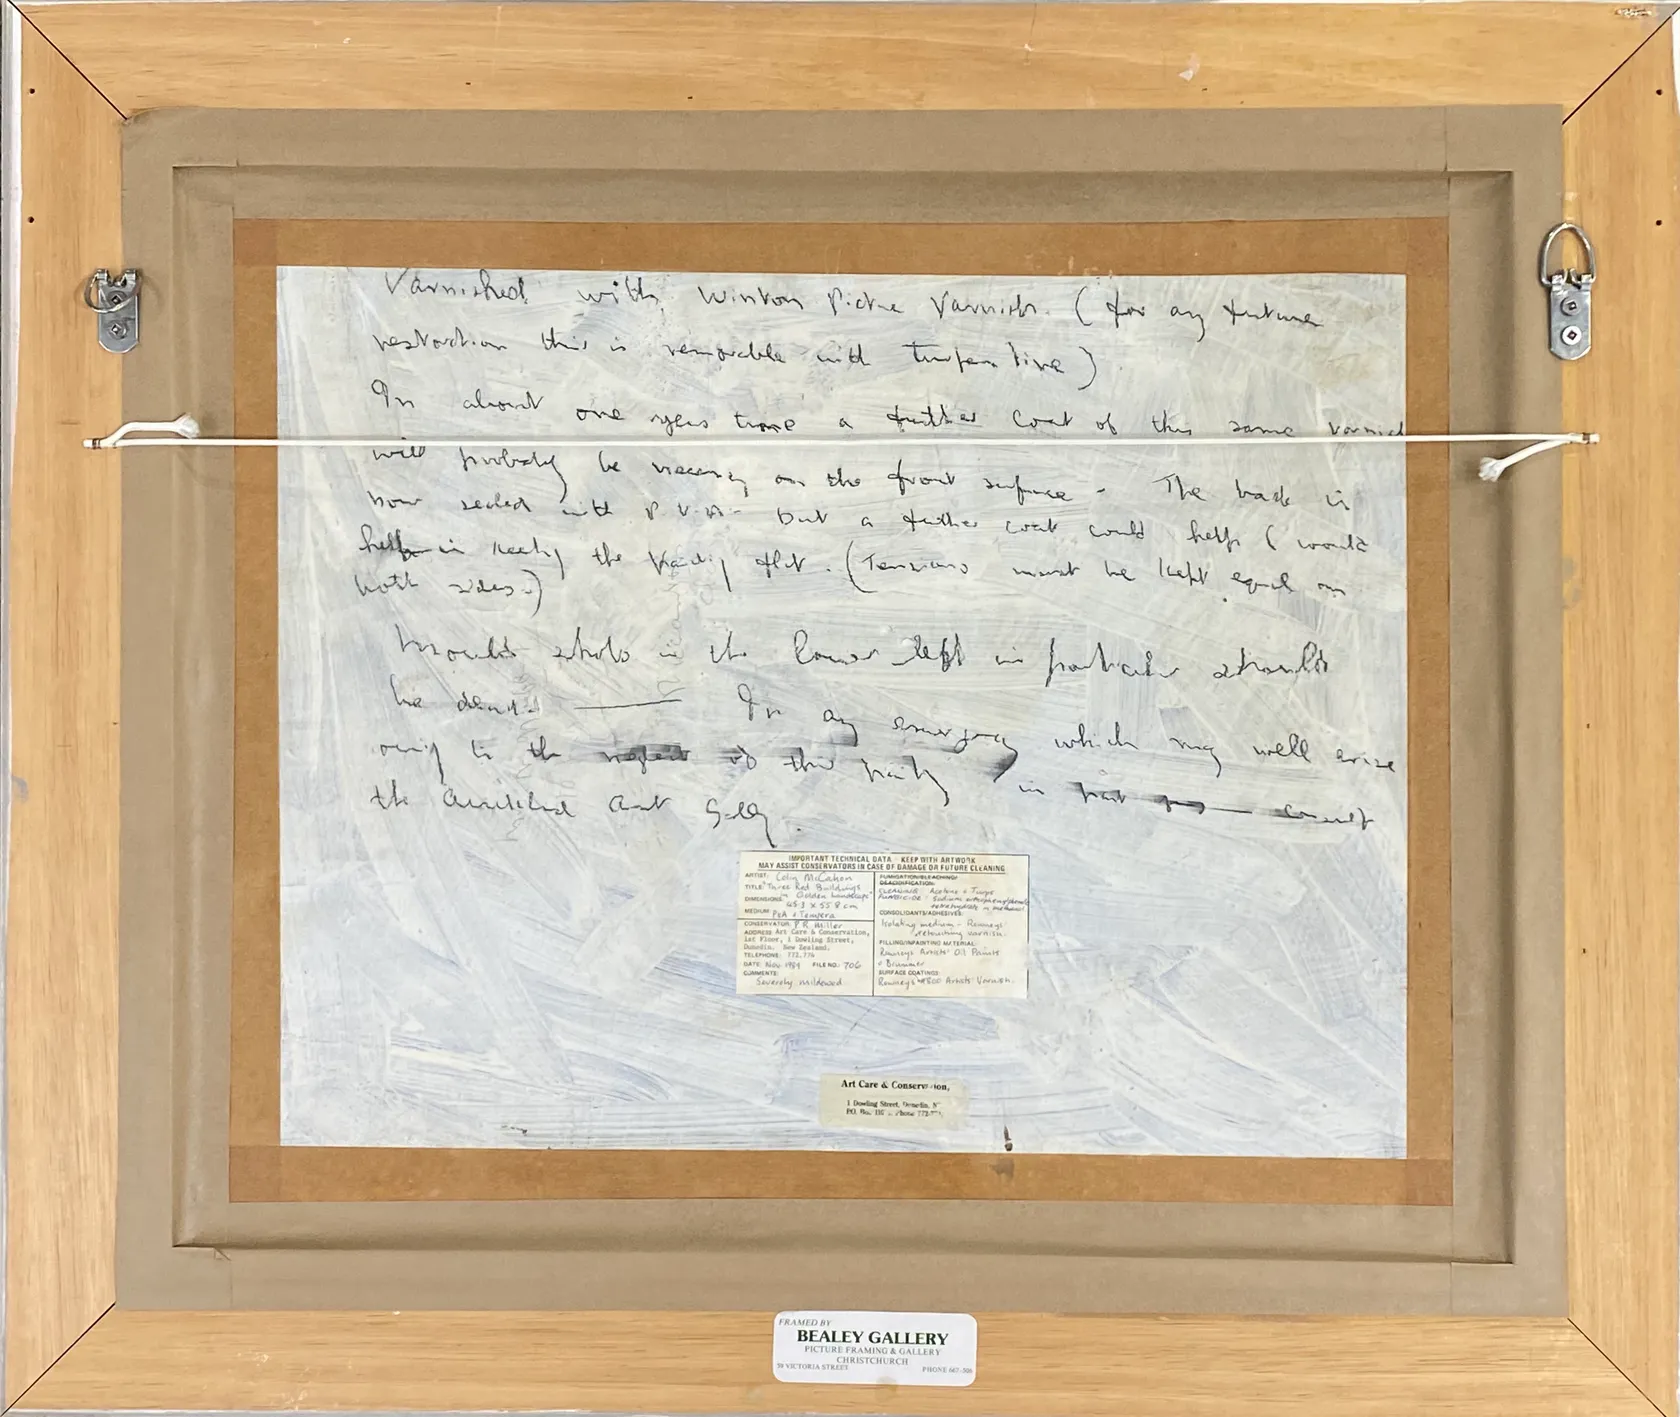 Varnished with Winton Picture Varnish. (for any future
restoration this is removable with Turpentine)
In about one years time a further coat of this same varnish
will probably be necessary on the front surface - The back is
now sealed with P.V.A. - but a further coat could help (would
help in keeping the painting flat. (Tensions must be kept equal on
both sides.)
Mould in the lower left in particular should
be In any emergency which may well arise
owing to the neglect of this painting in part consult
the Auckland Art Gallery.
IMPORTANT TECHNICAL DATA - KEEP WITH ARTWORK
MAY ASSIST CONSERVATORS IN CASE OF DAMAGE OR FUTURE CLEANING
ARTIST: Colin McCahon
TITLE: "Three Red Buildings
in Golden Landscape"
DIMENSIONS: 45.3 x 55.8 cm
MEDIUM: PVA & Tempera
CONSERVATOR: P R Miller
ADDRESS Art Care & Conservation,
1st Floor, 1 Dowling Street,
Dunedin. New Zealand.
TELEPHONE: 772,776
DATE: Nov 1989 FILE NO.: 706
COMMENTS:
Severely mildewed
FUMIGATION/BLEACHING/
DEACIDIFICATION:
CLEANING: Acetone & Turps
FUNGICIDE: Sodium
in methanol
CONSOLIDANTS/ADHESIVES:
Isolating medium - Rowneys'
retouching varnish.
FILLING/INPAINTING MATERIAL:
Rowneys Artists' Oil Paints
& Brummer
SURFACE COATINGS:
Rowneys' #800 Artists' Varnish.
Art Care & Conservation,
1 Dowling Street, Dunedin,
P.O. Box Phone
FRAMED BY
BEALEY GALLERY
PICTURE FRAMING & GALLERY
CHRISTCHURCH
50 VICTORIA STREET PHONE 667-306